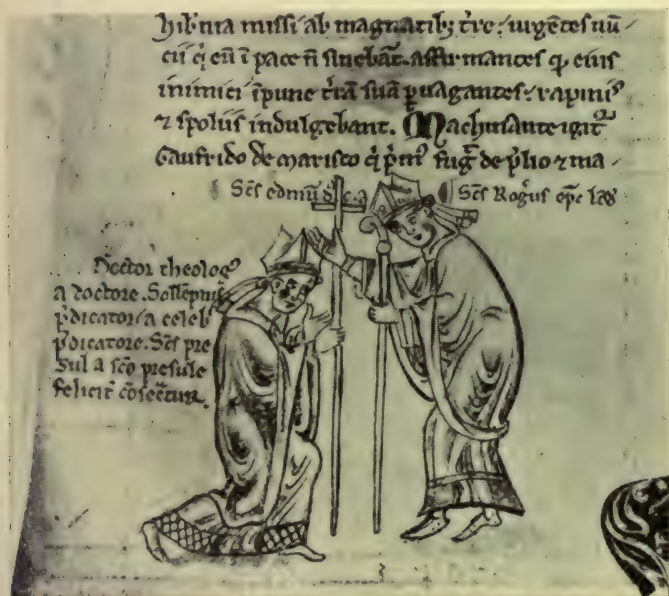 hib'nia missi ab magnatib; t're. urgētes nū
cii q̇ eū ī pace n̄ sinebāt. affirmantes q̇ eius
inimici īpune t'rā suā ꝑuagantes. rapinis
⁊ spoliis indulgebant. Machinante igit'
Gaufrido de marisco q̇ p̄m' fug̃ de p̄lio ⁊ ma
Scs edmūd' c. a
Scs Rog'us epc
Doctor theolog'
a doctore. Sollepnis
p̄dicator a celeb'
p̄dicatore. Scs pre
sul a sc̄o presule
felicit' cōsec̄tur.